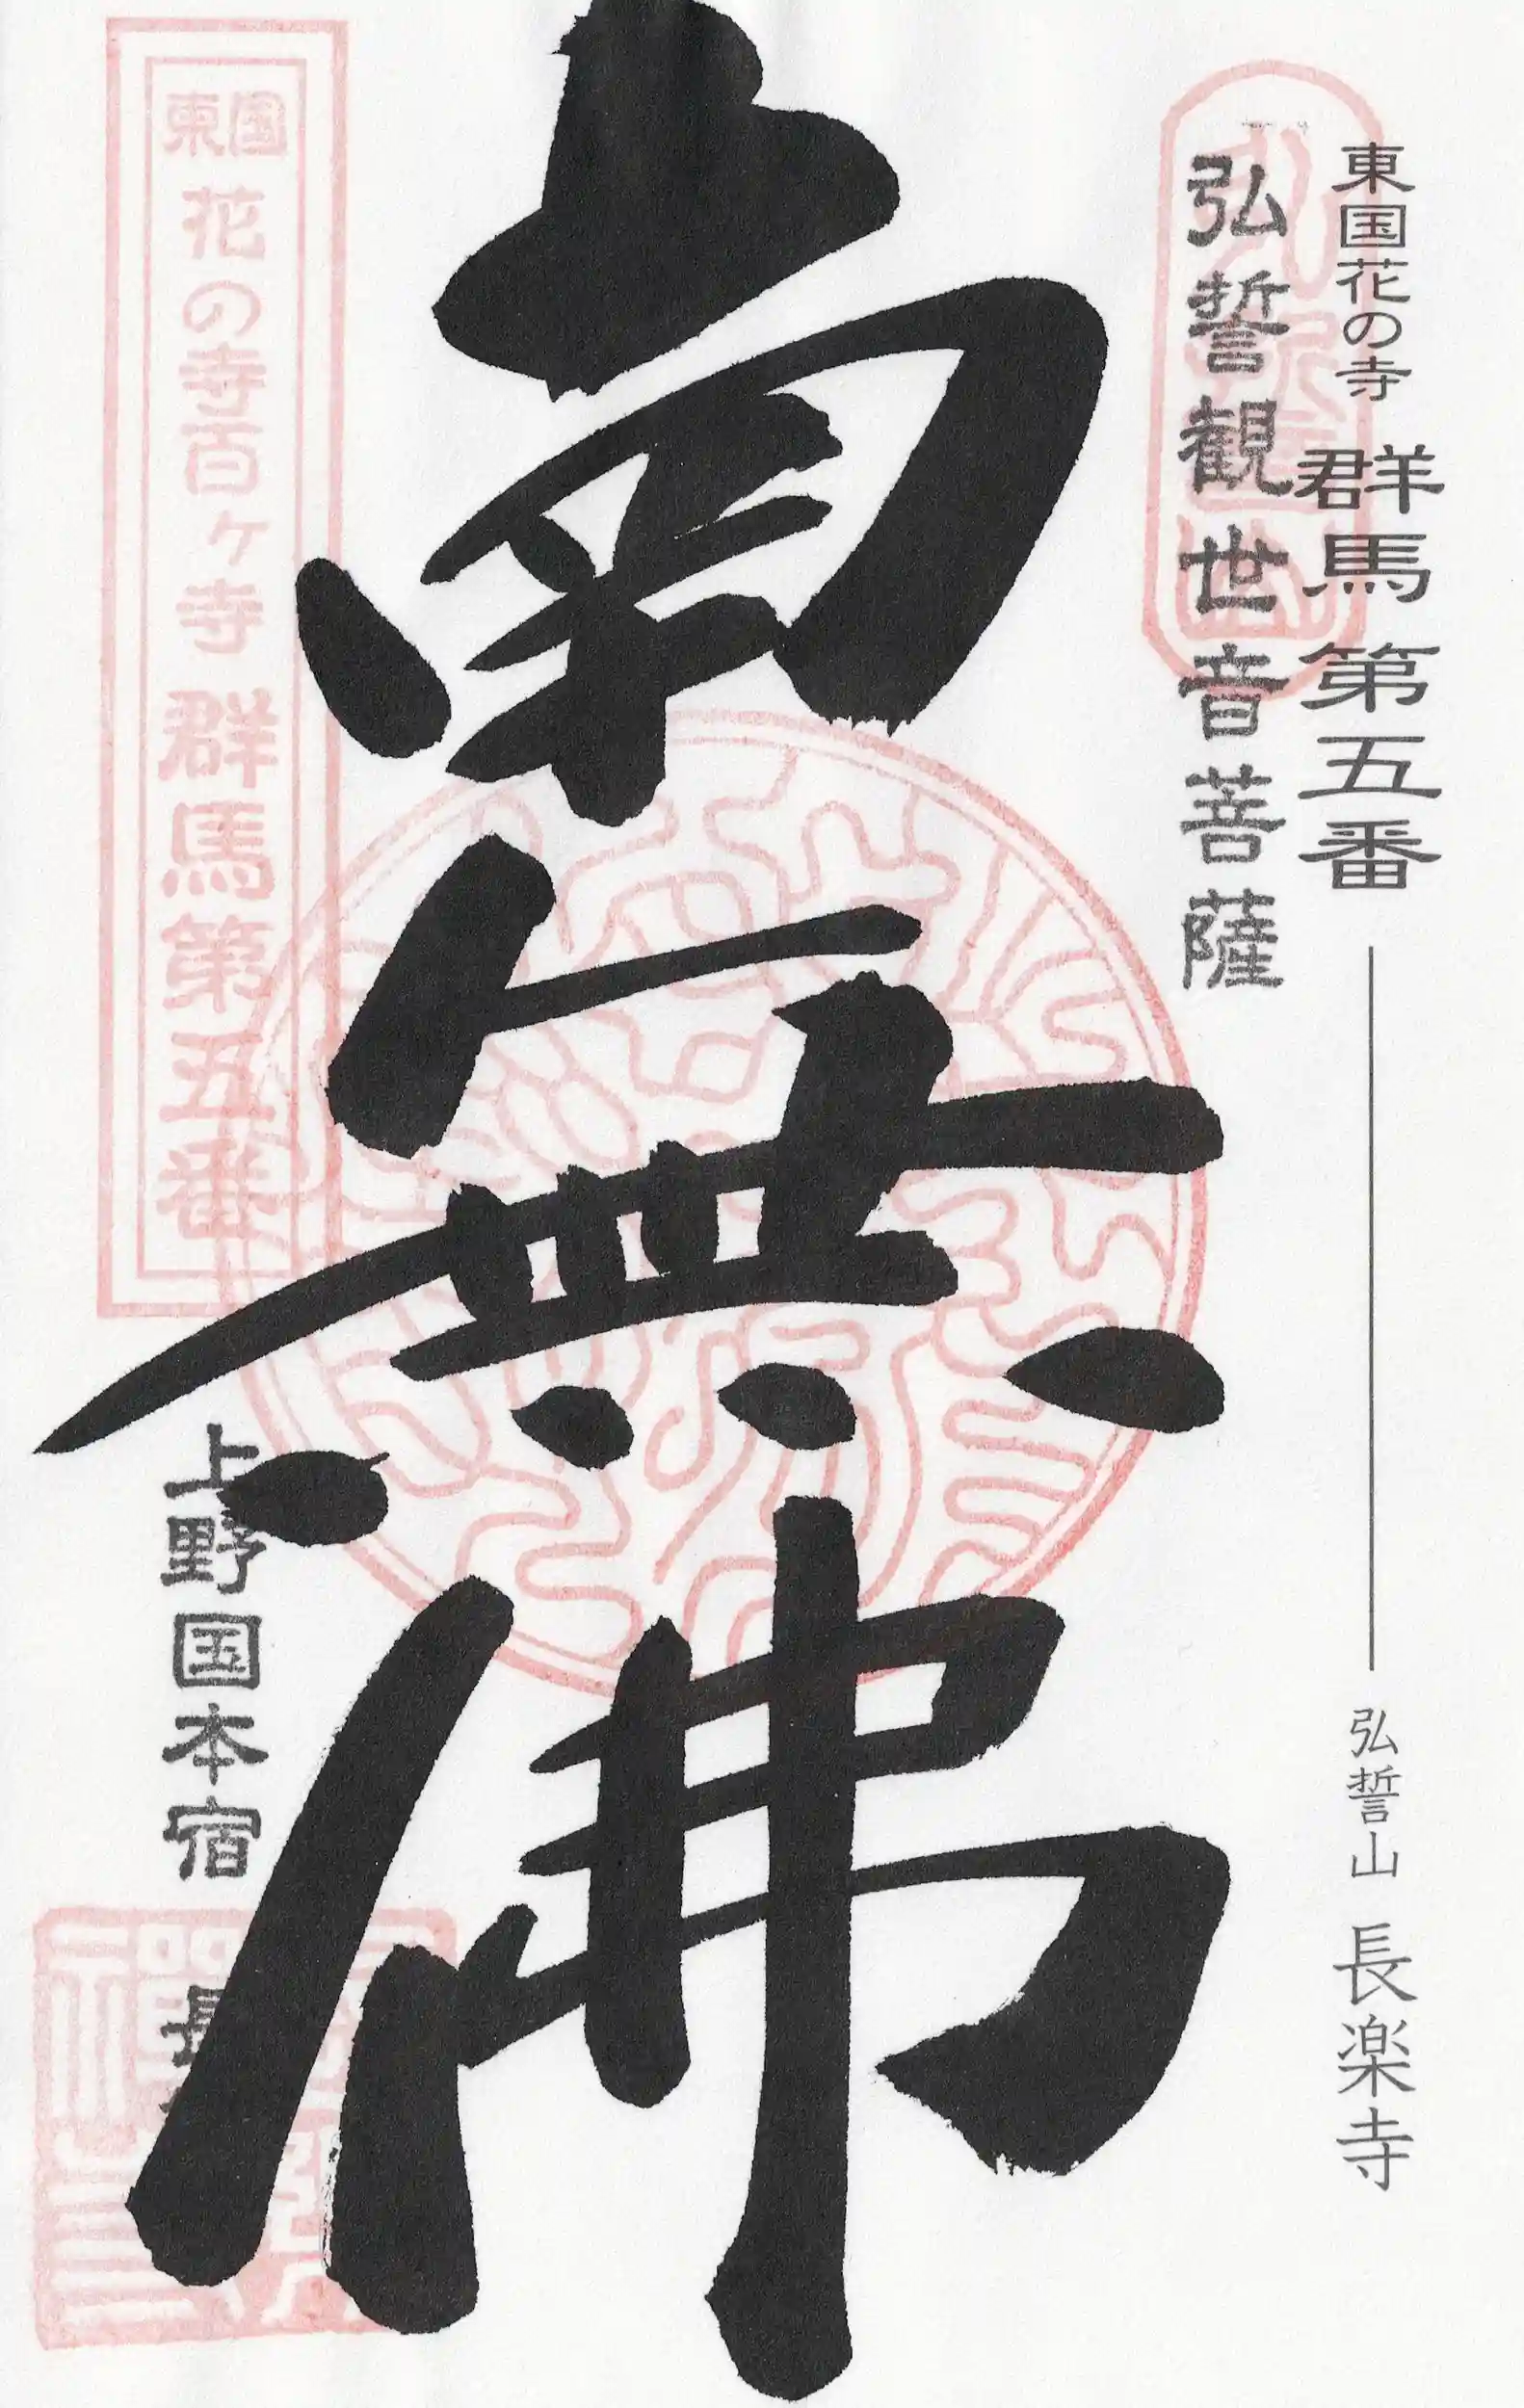 東国花の寺 群馬第五番 弘誓山 長楽寺
弘誓観世音菩薩
南無佛
東国花の寺百ヶ寺 群馬第五番
上野国本宿 長